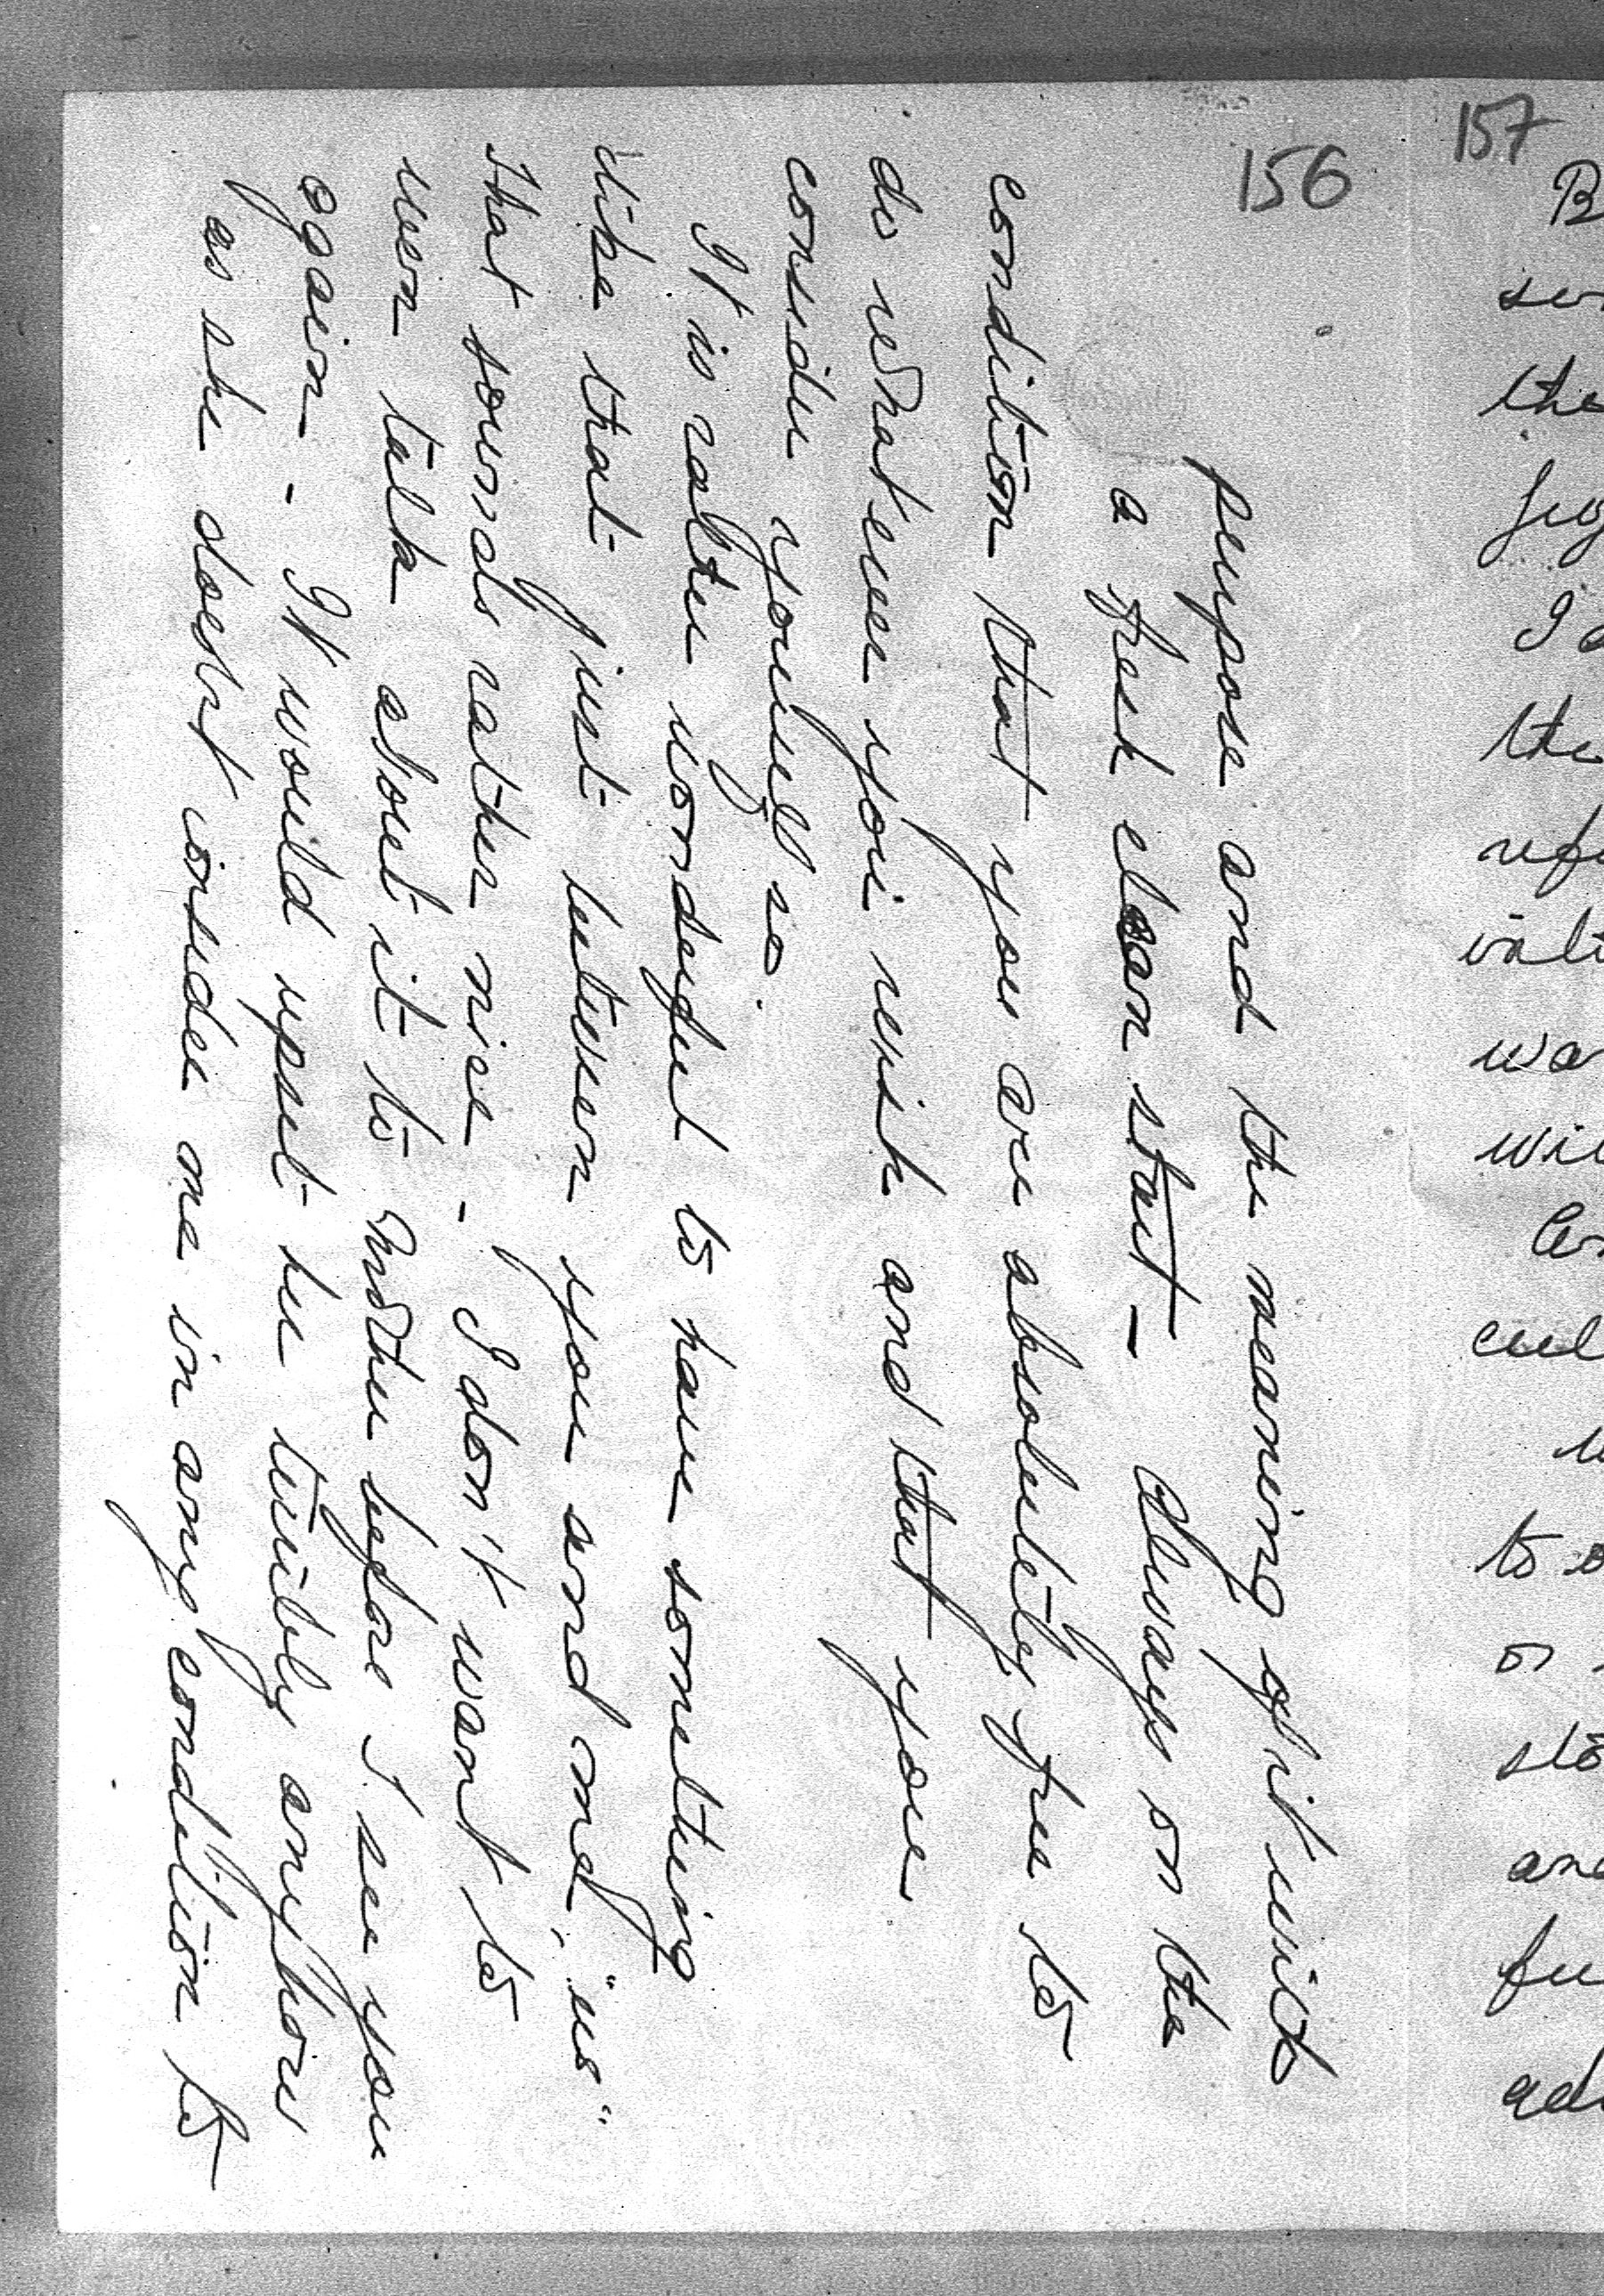 156
purpose and the meaning of it with
a fresh clean start - Always on the
condition that you are absolutely free to
do whatever you wish and that you
consider yourself so.
It is rather wonderful to have something
like that just between you and me, "us"
that sounds rather nice - I don't want to
even talk about it to Mother before I see you
again - It would upset her terribly anyhow
as she doesn't consider me in any condition to
157
B
the
I
the
to